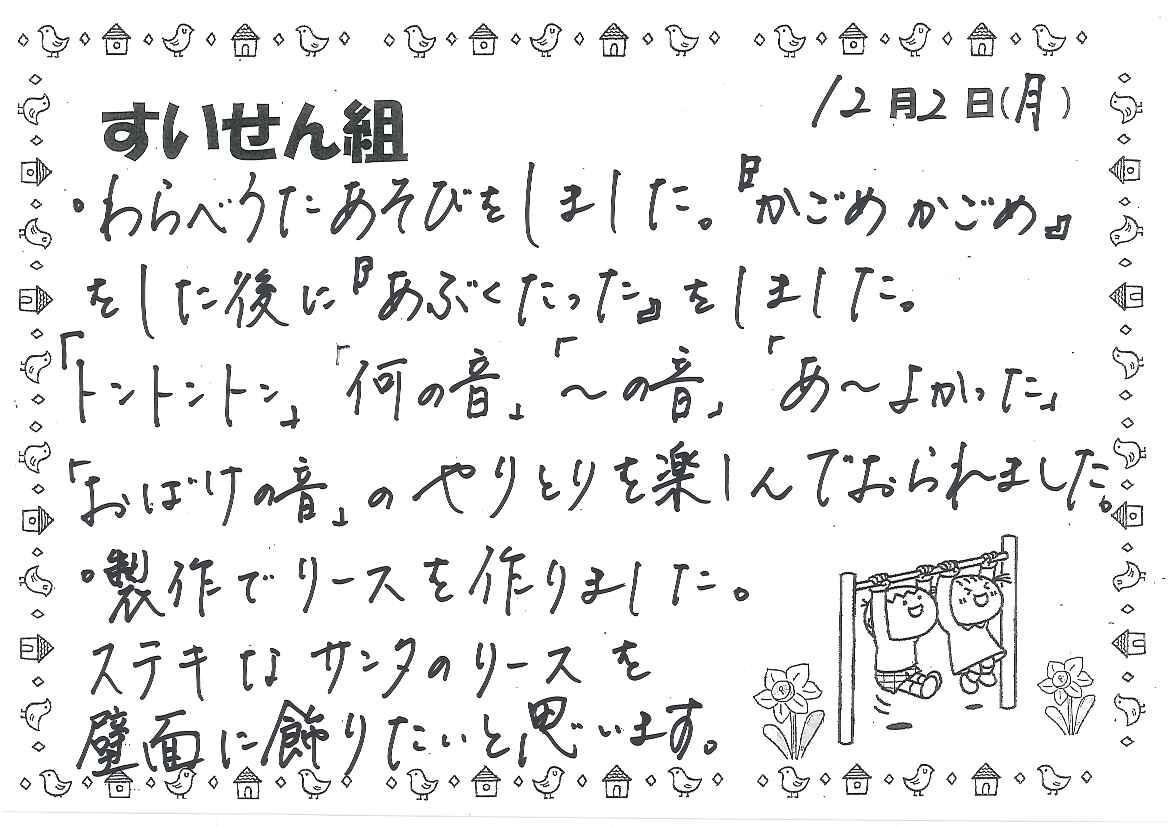 すいせん組
12月2日(月)
・わらべうたあそびをしました。『かごめかごめ』
をした後に『あぶくたった』をしました。
「トントントン」「何の音」「～の音」「あ～よかった」
「おばけの音」のやりとりを楽しんでおられました。
・製作でリースを作りました。
ステキなサンタのリースを
壁面に飾りたいと思います。